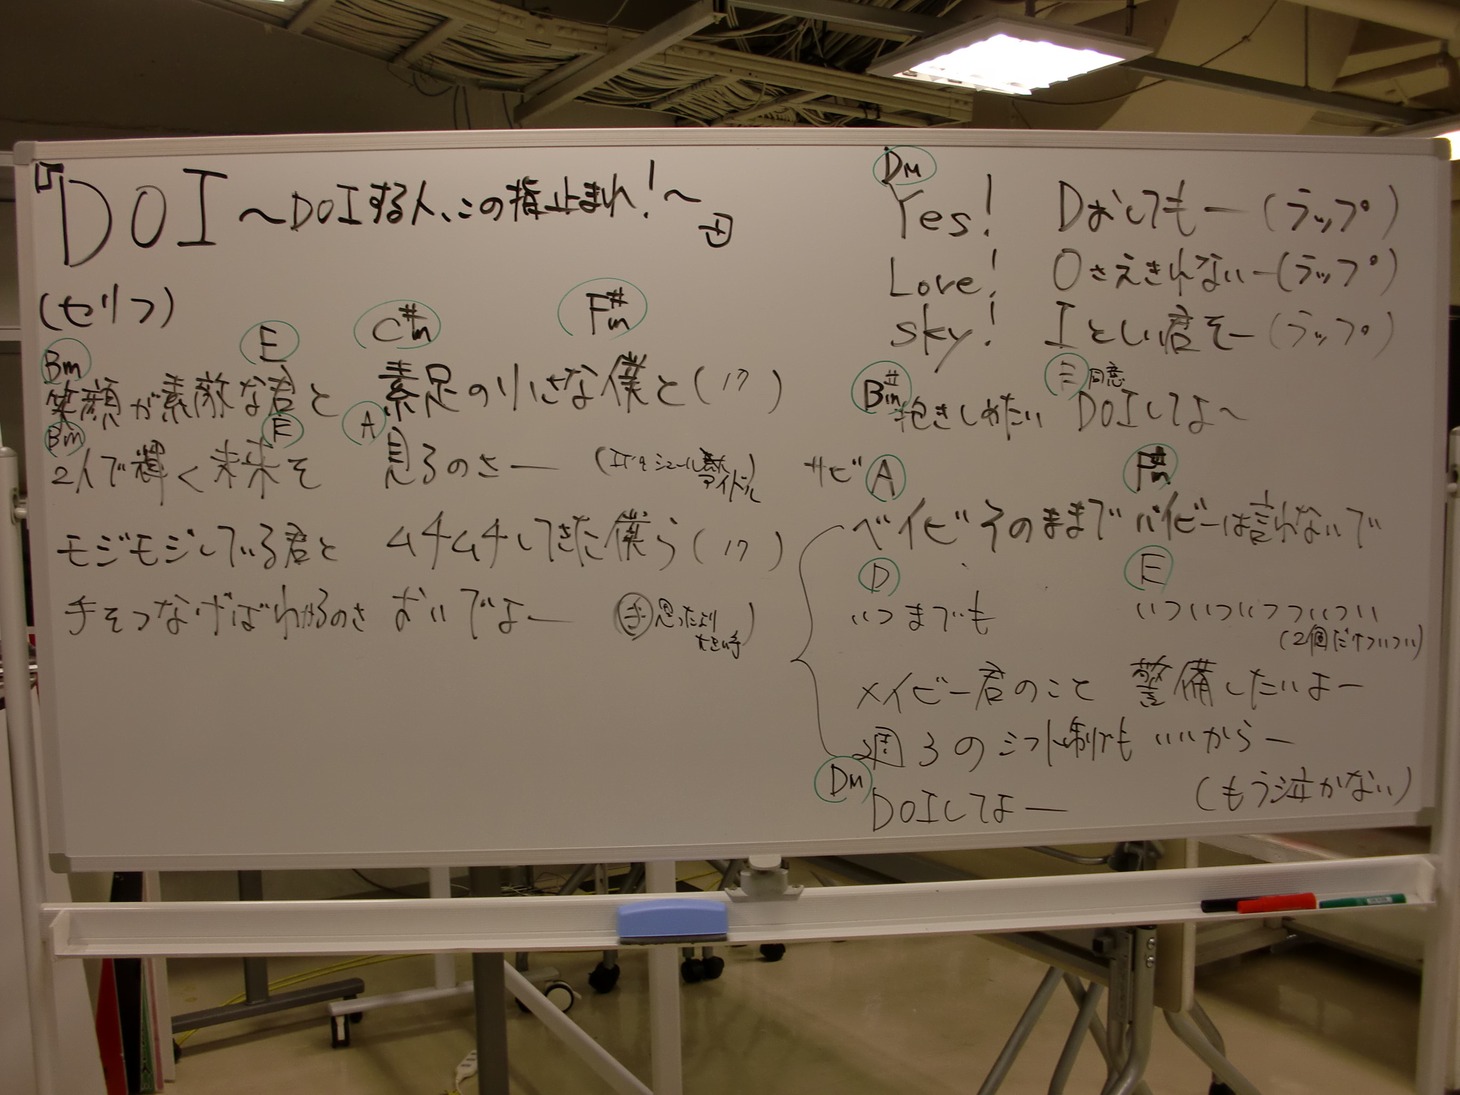 『DOI ～DOIする人、この指止まれ！～』
(セリフ)
Bm E C#m F#m
笑顔が素敵な君と 素足の小さな僕と( 17 )
Bm E A
2人で輝く未来を 見るのさー
モジモジしている君と ムチムチしてきた僕ら( 17 )
手をつなげばわかるのさ おいでよー (手 思ったより
Dm
Yes! Dおしてもー(ラップ)
Love! Oさえきれないー(ラップ)
sky! Iとしい君をー(ラップ)
B#m 同意
抱きしめたい DOIしてよ～
サビ A F#m
ベイビそのままで バイビーは言わないで
D E
いつまでも いついついつついつい
(2個だけついつい)
メイビー君のこと 警備したいよー
週3のシフト制でも いいからー
Dm
DOIしてよー (もう泣かない)